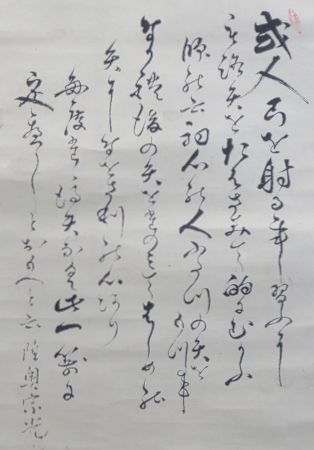 或人弓を射る事習ふに
もろ矢をたはさみて的にむかふ
師の云初心の人ふたつの矢を
もつ事
なかれ後の矢をたのみてはしめの
矢になをさりの心あり
毎度たゝ得失なく此一箭に
定へしとおもへと云 陸奥宗光